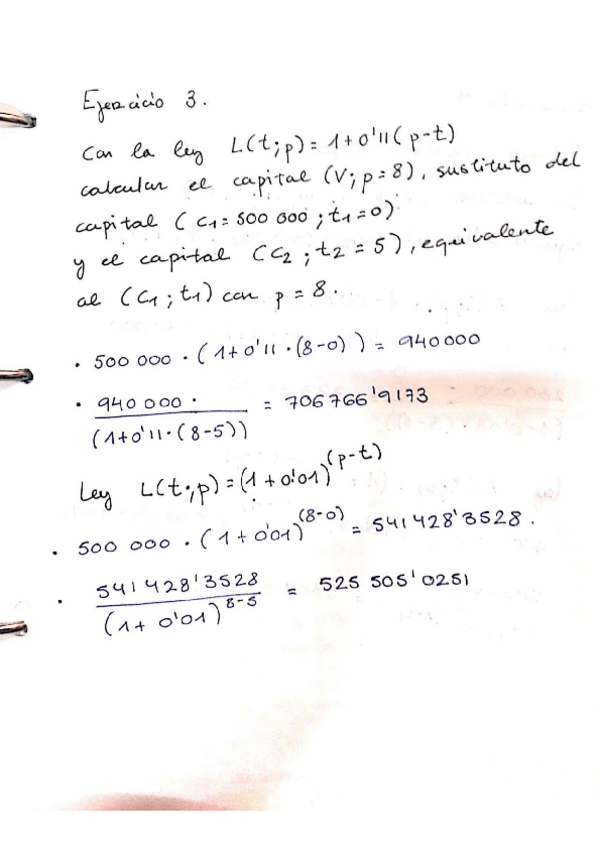 Ejercicio 3.
Con la ley L(t;p)=1+0'11(p-t)
calcular el capital (V;p=8), sustituto del
capital (C1=500 000; t1=0)
y el capital (C2; t2=5), equivalente
al (C1; t1) con p=8.
· 500 000 · (1+0'11·(8-0)) = 940000
· 940 000 · / (1+0'11·(8-5)) = 706766'9173
Ley L(t;p)=(1+0'01)^(p-t)
· 500 000 · (1+0'01)^(8-0) = 541 428'3528.
· 541 428'3528 / (1+0'01)^8-5 = 525 505'0251